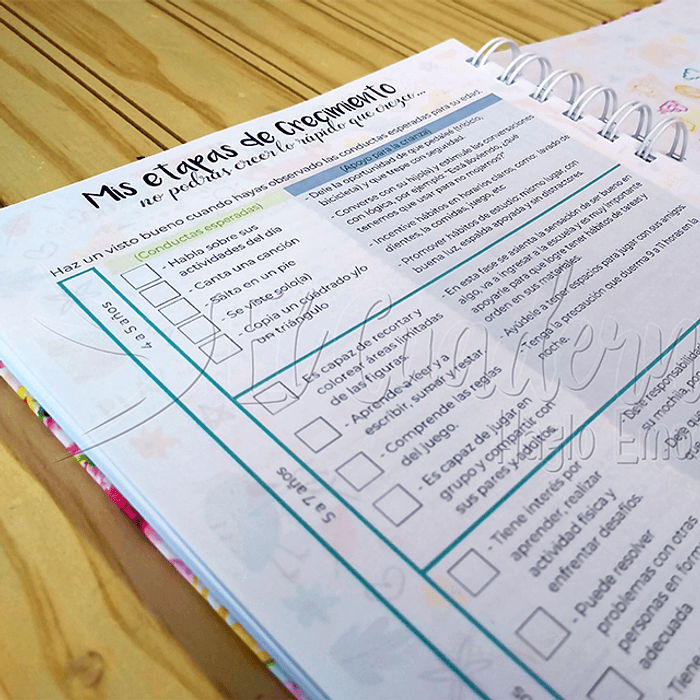 Mis etapas de Crecimiento
no podrás creer lo rápido que crezco...
Haz un visto bueno cuando hayas observado las conductas esperadas para su edad.
(Conductas esperadas)
(Apoyo para la crianza)
4 a 5 años
- Habla sobre sus
actividades del día
- Canta una canción
- Salta en un pie
- Se viste solo(a)
- Copia un cuadrado y/o
un triángulo
- Dele la oportunidad de que pedaleé (triciclo,
bicicleta), y que trepe con seguridad.
- Converse con su hijo(a) y estimule las conversaciones
con lógica, por ejemplo: "Está lloviendo, ¿qué
tenemos que usar para no mojarnos?
- Incentive hábitos en horarios claros, como: lavado de
dientes, la comidas, juego, etc.
- Promover hábitos de estudio: mismo lugar con
buena luz, espalda apoyada y sin distractores.
5 a 7 años
- Es capaz de recortar y
colorear áreas limitadas
de las figuras.
- Aprende a leer y a
escribir, sumar y restar.
- Comprende las reglas
del juego.
- Es capaz de jugar en
grupo y compartir con
sus pares y adultos.
- En esta fase se asienta la sensación de ser bueno en
algo, va a ingresar a la escuela y es muy importante
apoyarle para que logre tener hábitos de tareas y
orden en sus materiales.
- Ayúdele a tener espacios para jugar con sus amigos.
- Tenga la precaución que duerma 9 a 11 horas en
noche.
- Tiene interés por
aprender, realizar
actividad física y
enfrentar desafíos.
- Puede resolver
problemas con otras
personas en
adecuada
- Tiene
Dele responsabilidad
su mochila,